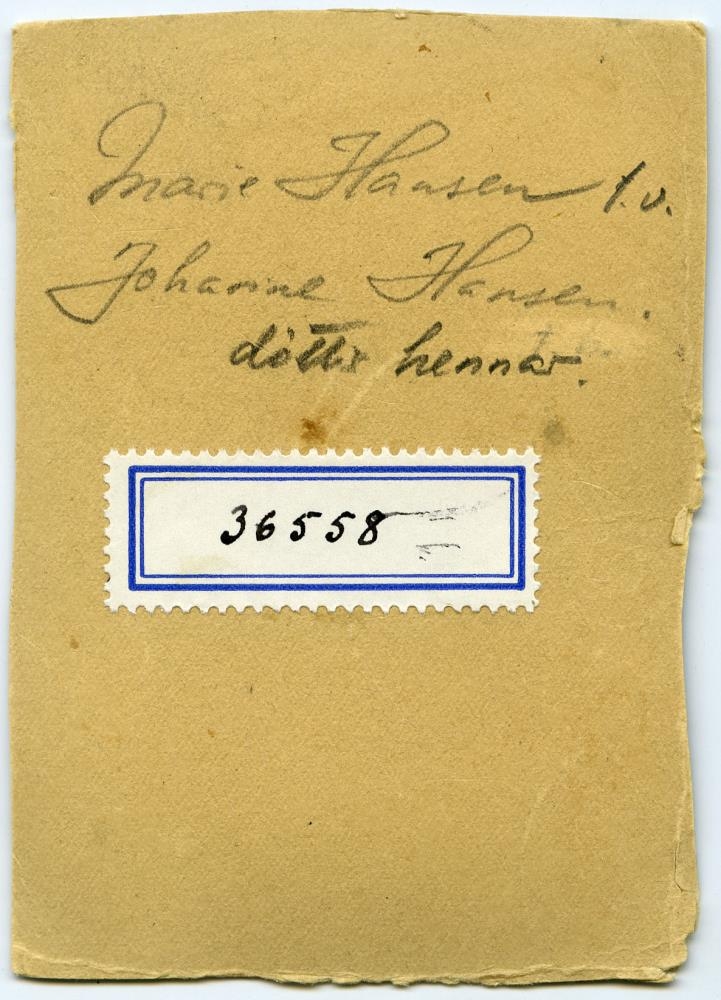 Marie Hansen t.v.
Johanne Hansen.
dóttir hennar.
36558